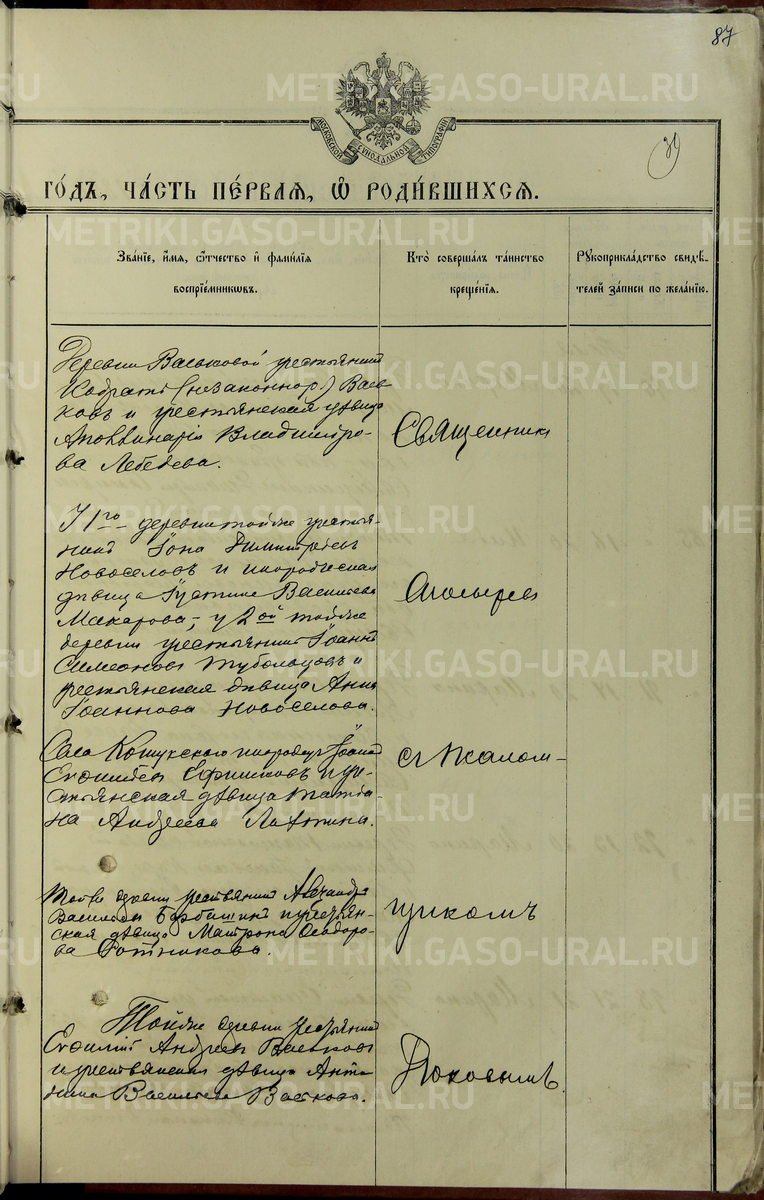 87
METRIKI.GASO-URAL.RU
МОСКОВСКОЙ СѴНОДАЛЬНОЙ ТИПОГРАФІИ
39
го́дъ, ча́сть пе́рваѧ, ѡ҆ роди́вшихсѧ.
Зва́нїе, и҆́мѧ, ѻ҆́тчество и҆ фами́лїѧ
воспрїе́мникѡвъ.
Кто̀ соверша́лъ та́инство
креще́нїѧ.
Рꙋкоприкла́дство свидѣ́-
телей за́писи по жела́нїю.
Деревни Васьковой крестьянинъ
Кодратъ (незаконнор.) Вась-
ковъ и крестьянская дѣвица
Аполлинарія Владиміро-
ва Лебедева.
Священникъ
У 1го деревни тойже крестья-
нинъ Іона Димитріевъ
Новоселовъ и инородческая
дѣвица Іустина Васильева
Макарова; у 2ой тойже
деревни крестьянинъ Іоаннъ
Симеоновъ Тубольцовъ и
крестьянская дѣвица Анна
Іоаннова Новоселова.
Села Кошукского инородецъ Іоаннъ
Евфиміевъ Ефимковъ и кре-
стьянская дѣвица Татья-
на Андреева Лаптина.
съ Псалом-
Тойже деревни крестьянинъ Александръ
Васильевъ Барбашинъ и крестьян-
ская дѣвица Матрона Ѳеодоро-
ва
щикомъ
Тойже деревни крестьянинъ
Евфимій Андреевъ Васьковъ
и крестьянская дѣвица Анто-
нина Васильева Васькова.